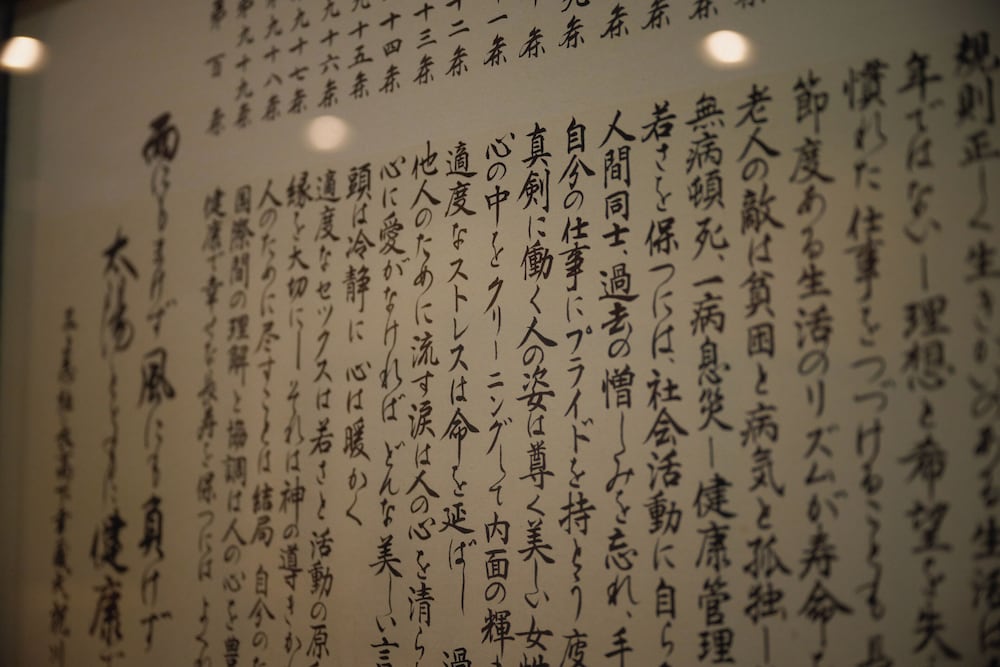 規則正しく生きがいのある生活は
年ではない―理想と希望を失
慣れた仕事をつづけることも長
節度ある生活のリズムが寿命
老人の敵は貧困と病気と孤独―
無病頓死、一病息災―健康管理
若さを保つには、社会活動に自ら
人間同士、過去の憎しみを忘れ、手
自分の仕事にプライドを持とう 疲
真剣に働く人の姿は尊く美しい 女性
心の中をクリーニングして 内面の輝
適度なストレスは命を延ばし 過
他人のために流す涙は人の心を清ら
心に愛がなければ どんな美しい言
頭は冷静に 心は暖かく
適度なセックスは若さと活動の原
縁を大切に― それは神の導きか
人のために尽すことは結局 自分の
国際間の理解と協調は人の心を豊
健康で幸せな長寿を保つには よく
条
条
条
条
条
十一条
十二条
十三条
十四条
九十五条
九十六条
九十七条
第九十八条
第九十九条
第百条
雨にもまけず 風にも負けず
太陽とともに 健康